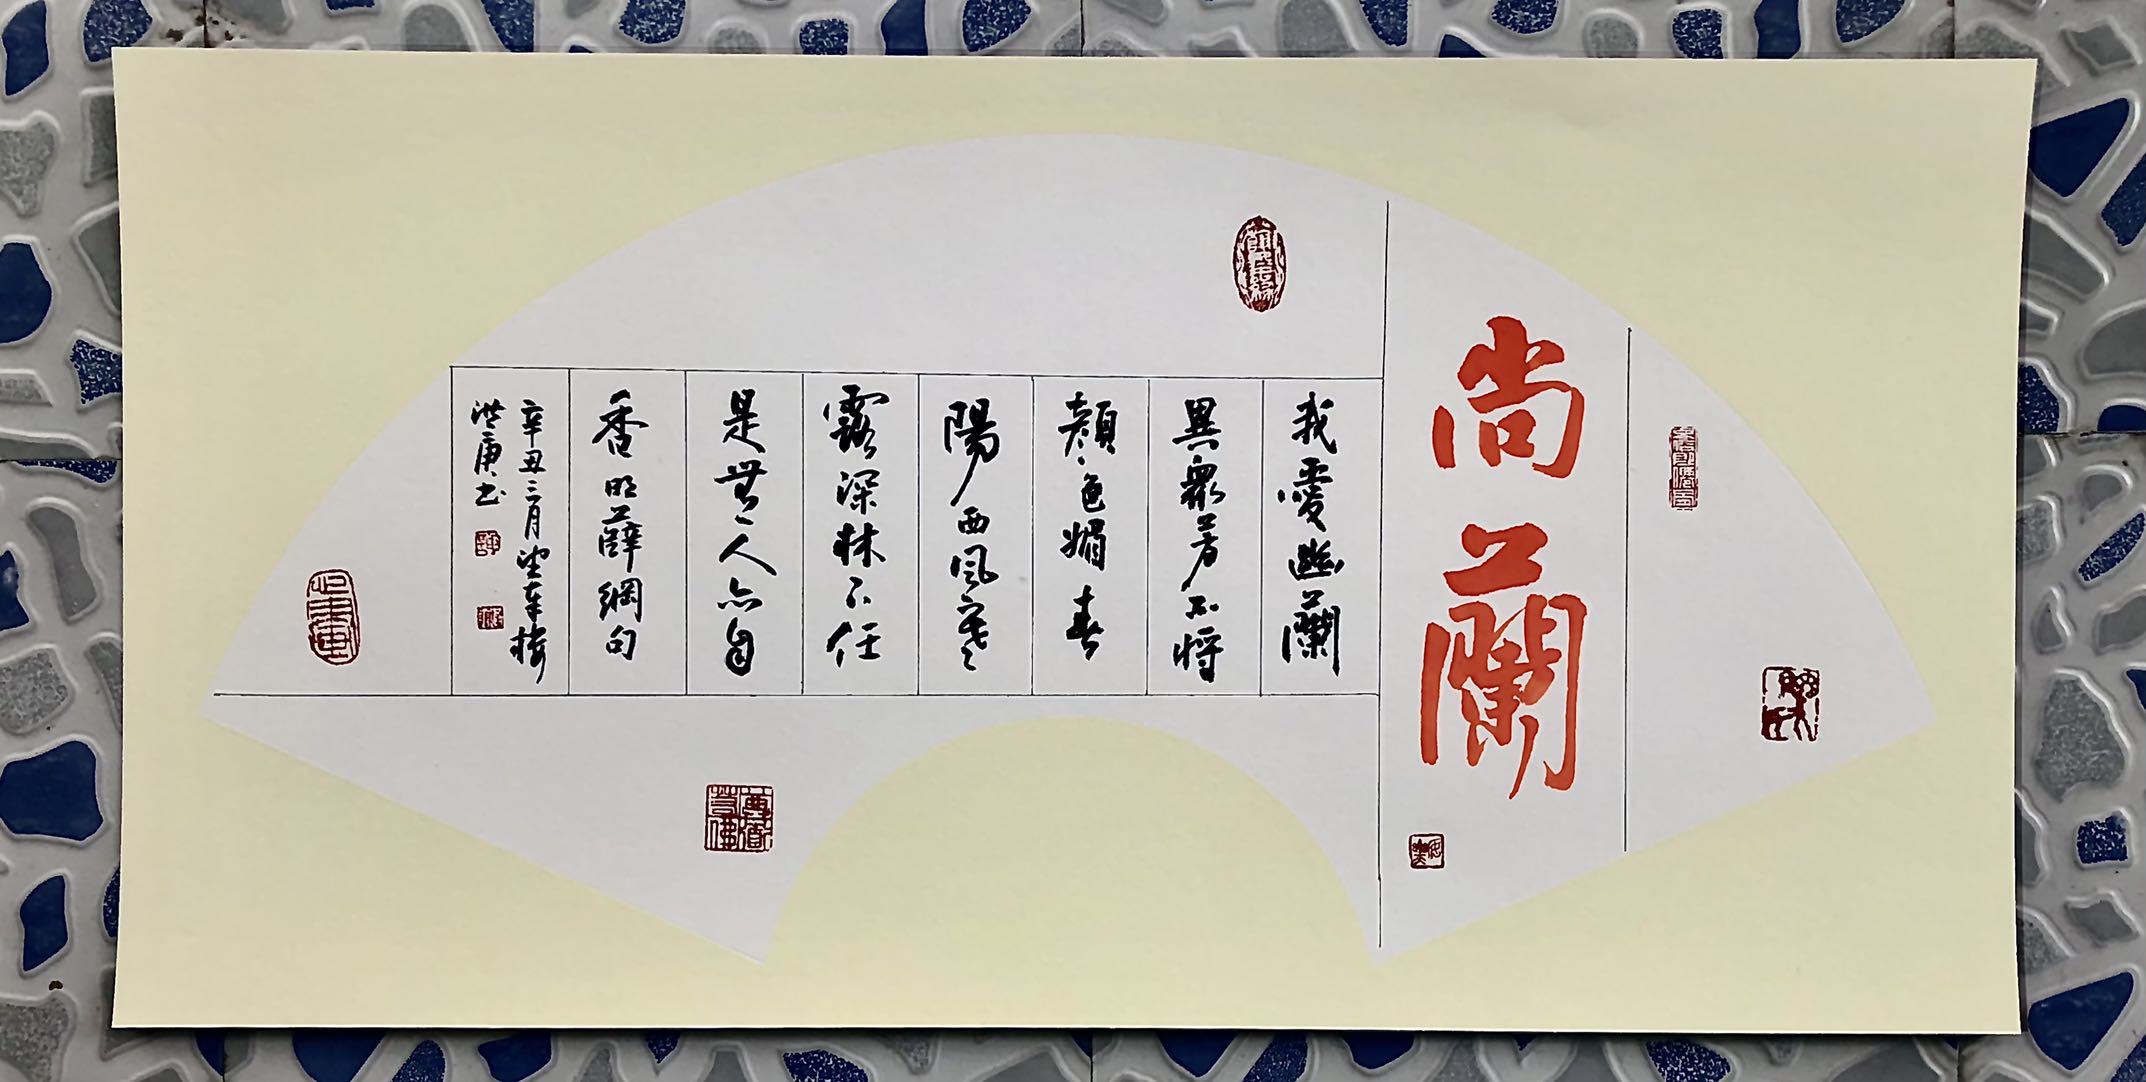 尚蘭
我愛幽蘭
異衆芳不將
顏色媚春
陽西風寒
露深林下任
是無人亦自
香明薛綱句
辛丑三月望車樓
洪庚書